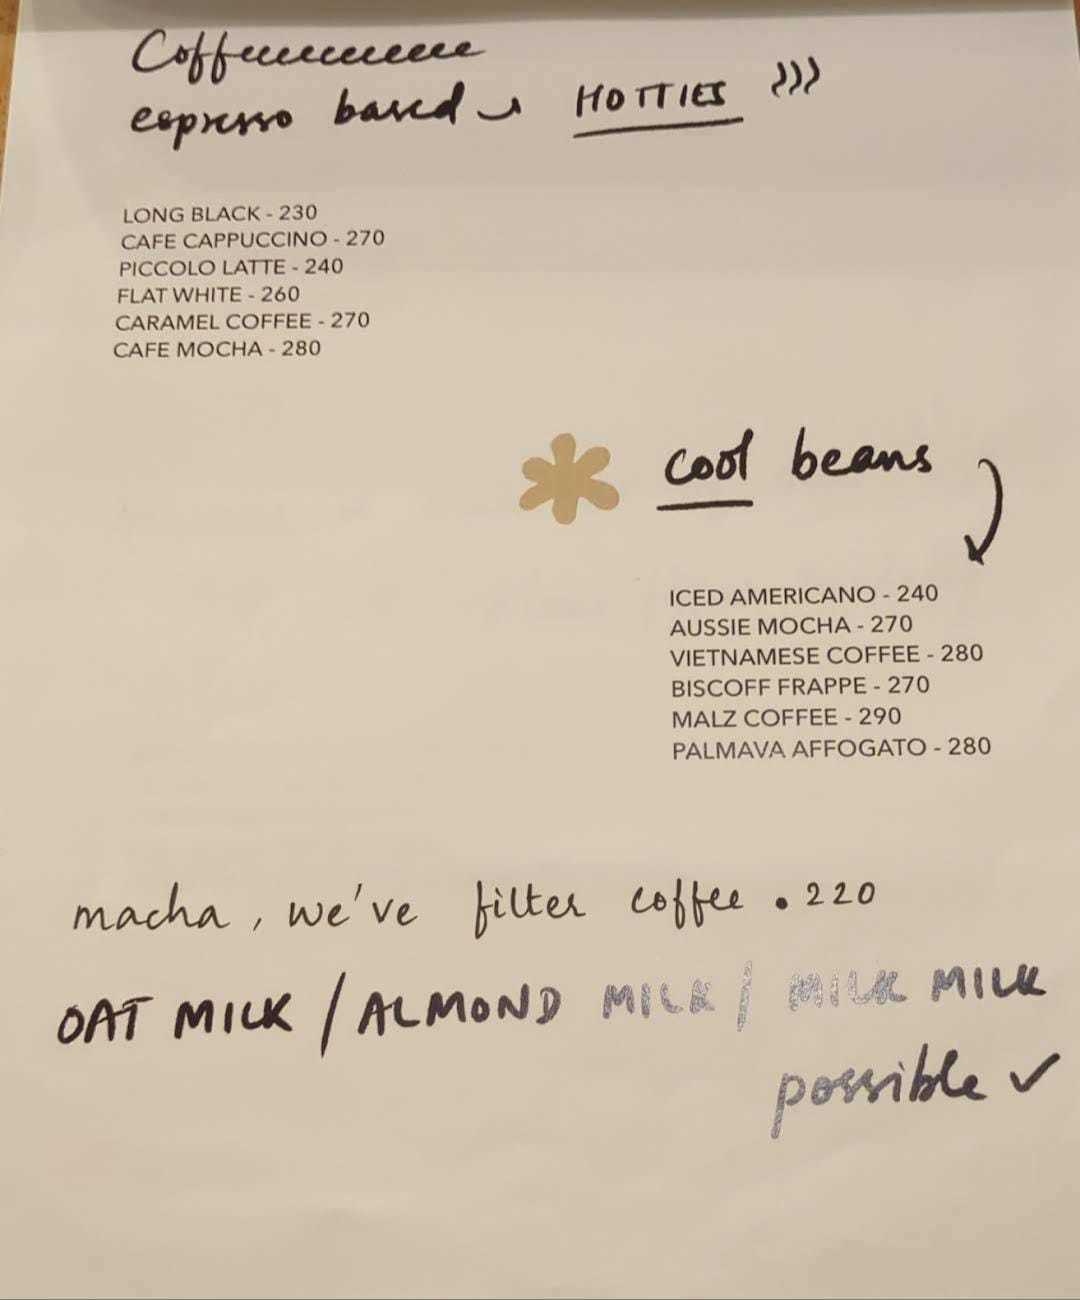 Coffeeeeeeeeeeee
espresso based HOTTIES
LONG BLACK - 230
CAFE CAPPUCCINO - 270
PICCOLO LATTE - 240
FLAT WHITE - 260
CARAMEL COFFEE - 270
CAFE MOCHA - 280
cool beans
ICED AMERICANO - 240
AUSSIE MOCHA - 270
VIETNAMESE COFFEE - 280
BISCOFF FRAPPE - 270
MALZ COFFEE - 290
PALMAVA AFFOGATO - 280
macha, we've filter coffee . 220
OAT MILK / ALMOND MILK / MILK MILK
possible ✓